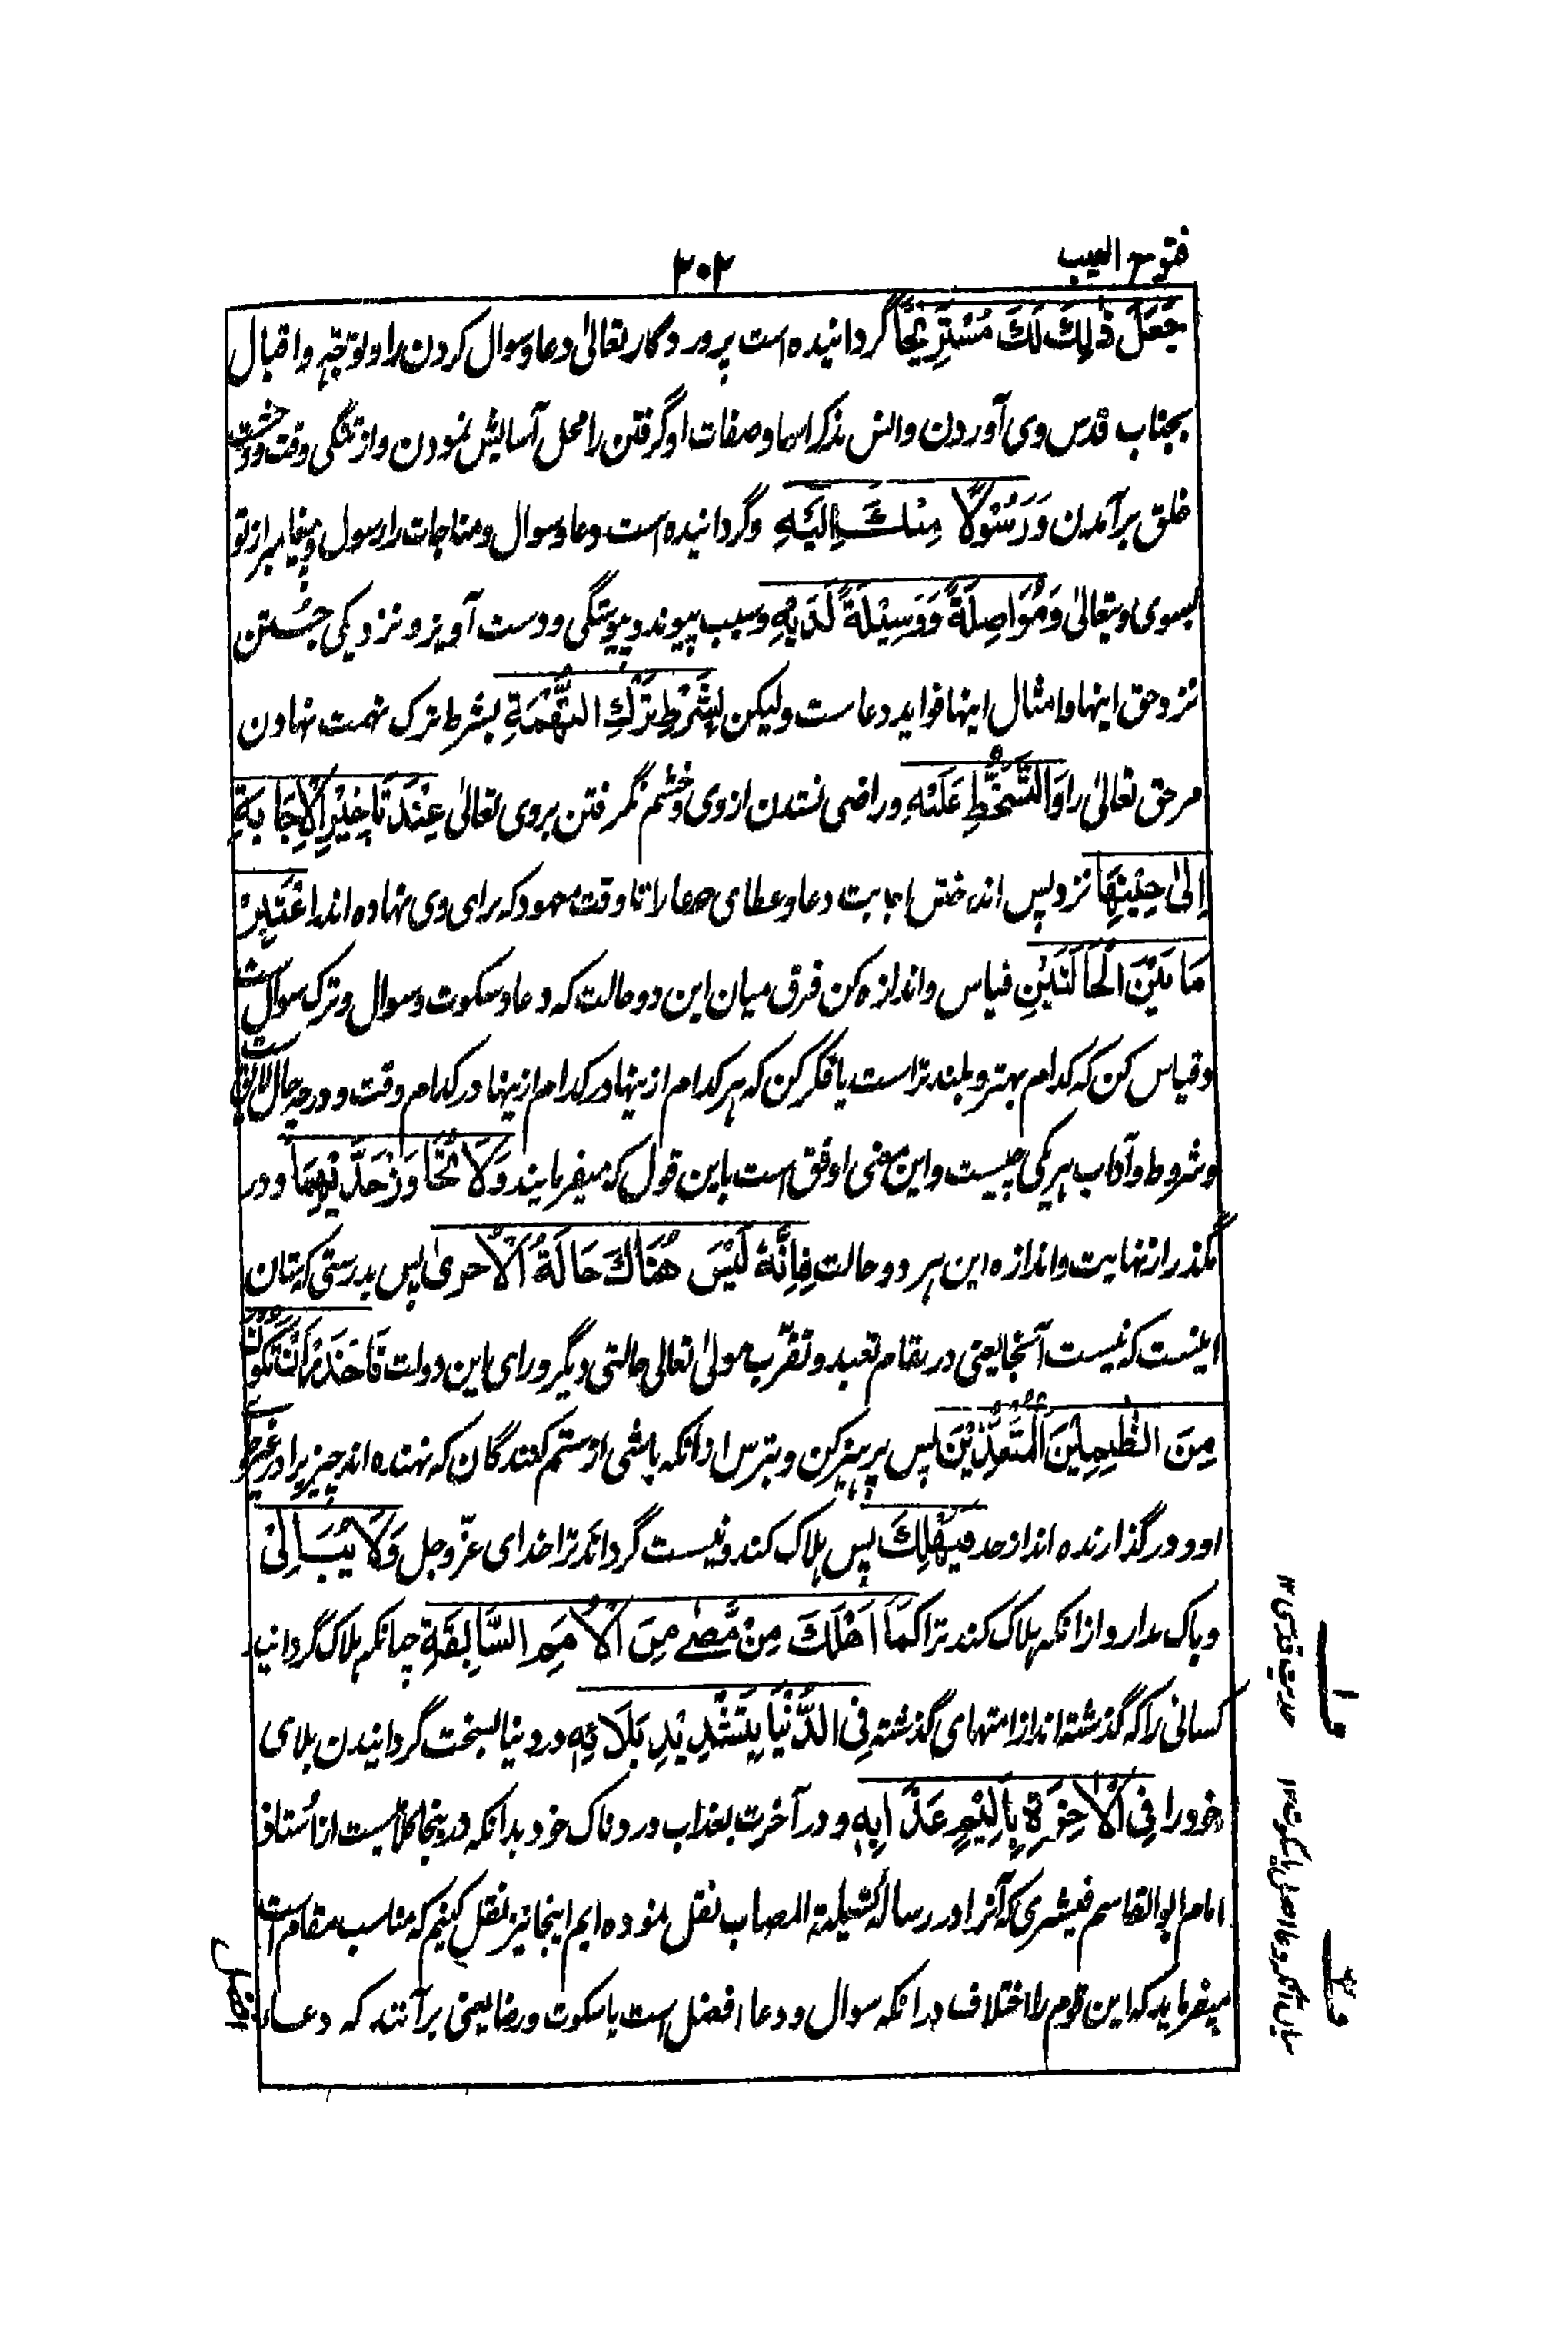 فتوح الغیب
۳۰۲
جَعَلَ ذٰلِكَ لَكَ مُسْتَرِيْحًا گردانیده است پروردگار تعالیٰ دعا و سوال کردن را و توجّہ و اقبال
بجناب قدس وی آوردن و انس بذکر اسما و صفات او گرفتن را محل آسایش نمودن و از تنگی وقت و وحشت
خلق برآمدن وَرَسُوْلًا مِنْكَ اِلَيْهِ و گردانیده است دعا و سوال و مناجات را رسول و پیغامبر از تو
بسوی ویتعالیٰ وَمُوَاصِلَةً وَوَسِيْلَةً لَدَيْهِ و سبب پیوند و پیوستگی و دست آویز و نزدیکی جُستن
نزد حق اینها و امثال اینها فواید دعاست و لیکن بِشَرْطِ تَرْكِ التُّهْمَةِ بشرط ترک تهمت نهادن
مر حق تعالیٰ را وَالتَّسَخُّطِ عَلَيْهِ و راضی نشدن از وی و خشم نگرفتن بروی تعالیٰ عِنْدَ تَاخِيْرِ الْاِجَابَةِ
اِلىٰ حِيْنِهَا نزد پس انداختن اجابت دعا و عطای مدعا را تا وقت معهود که برای وی نهاده اند اعْتَبِرْ
مَا بَيْنَ الْحَالَتَيْنِ قیاس و اندازه کن فرق میان این دو حالت که دعا و سکوت و سوال و ترک سوال ست
و قیاس کن که کدام بهتر و بلندتر است یا فکر کن که هر کدام ازینها در کدام ازینها در کدام وقت و درچه حال لائق ست
و شروط و آداب هر یکی چیست و این معنی اوفق است باین قول که میفرمایند وَلَا تَتَجَاوَزْ حَدَّ فِيْهِمَا و در
مگذر از نهایت و اندازه این هر دو حالت فَاِنَّهُ لَيْسَ هُنَاكَ حَالَةٌ اُخْرىٰ پس بدرستی که شان
اینست که نیست آنجا یعنی در مقام تعبد و تقرّب مولیٰ تعالی حالتی دیگر ورای این دولت فَاحْذَرْ اَنْ تَكُوْنَ
مِنَ الظّٰلِمِيْنَ الْمُتَعَدِّيْنَ پس پرهیز کن و بترس از آنکه باشی از ستم کنندگان که نهنده اند چیز را در غیر جا
او و درگذارنده اند از حد فَيُهْلِكَ پس هلاک کند و نیست گرداند ترا خدای عزّ و جل وَلَا يُبَالِيْ
و باک ندارد از انکه هلاک کند ترا كَمَا اَهْلَكَ مَنْ مَّضٰى مِنَ الْاُمَمِ السَّابِقَةِ چنانکه هلاک گردانید
کسانی را که گذشته اند از امتهای گذشته فِي الدُّنْيَا بِتَشْدِيْدِ بَلَائِهِ در دنیا بسخت گردانیدن بلای
خود را فِي الْاٰخِرَةِ بِاَلِيْمِ عَذَابِهِ و در آخرت بعذاب دردناک خود بدانکه درینجا کلامیست از اُستاذ
امام ابو القاسم قشیری که آنرا در رساله تسلیة المصاب نقل نموده ایم اینجا نیز نقل کنیم که مناسب مقام است
میفرماید که این قوم را اختلاف در آنکه سوال و دعا افضل است یا سکوت و رضا یعنی برآنند که دعاء افضل